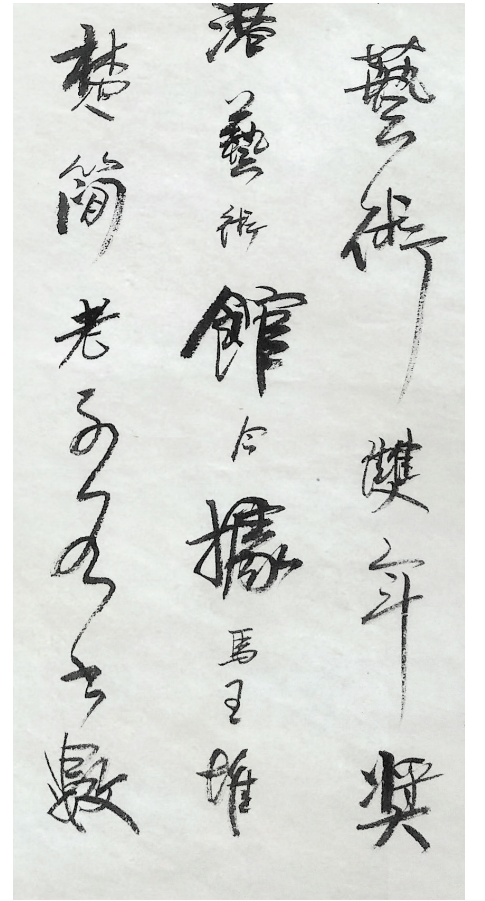 藝術雙年獎
港藝術館今據馬王堆
楚簡老子書數